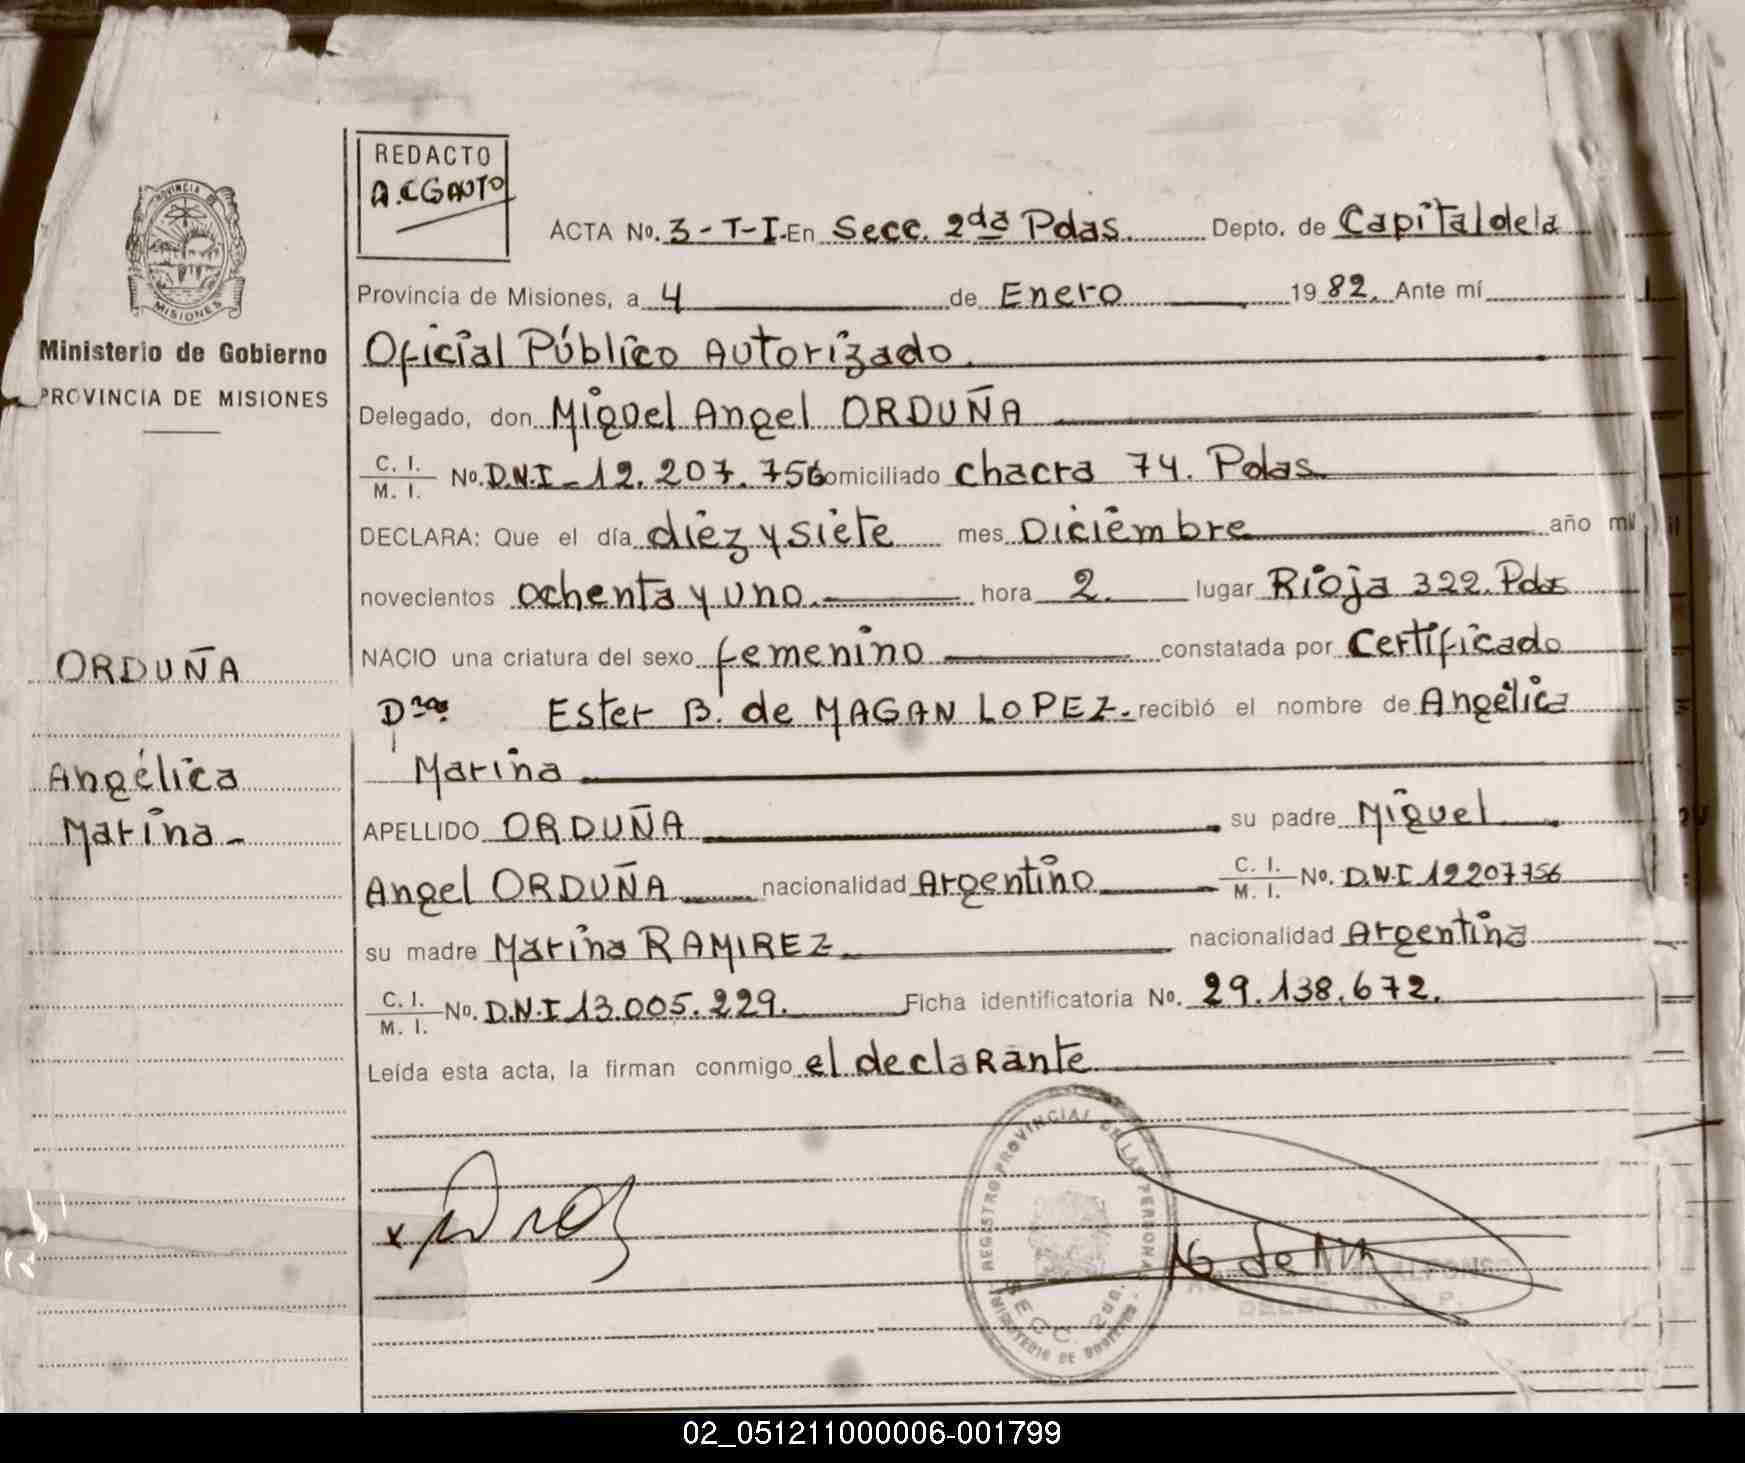 REDACTO
A.CGAUTO
ACTA No. 3-T-I.En Secc. 2da Pdas. Depto. de Capital de la
PROVINCIA
MISIONES
Provincia de Misiones, a 4 de Enero 1982. Ante mí
Ministerio de Gobierno
PROVINCIA DE MISIONES
Oficial Público Autorizado.
Delegado, don Miguel Angel ORDUÑA
C. I.
M. I. No. D.N.I - 12.207.756 domiciliado chacra 74. Pdas.
DECLARA: Que el día diez y siete mes Diciembre año mil
novecientos ochenta y uno. hora 2. lugar Rioja 322. Pdas
NACIO una criatura del sexo femenino constatada por Certificado
ORDUÑA
Dra. Ester B. de MAGAN LOPEZ. recibió el nombre de Angélica
Marina
Angélica
Marina-
APELLIDO ORDUÑA su padre Miguel
Angel ORDUÑA nacionalidad Argentino C. I.
M. I. No. D.N.I 12207756
su madre Marina RAMIREZ nacionalidad Argentina
C. I.
M. I. No. D.N.I 13.005.229. Ficha identificatoria No. 29.138.672.
Leída esta acta, la firman conmigo el declaRante
REGISTRO PROVINCIAL DE LAS PERSONAS
SECC. 2DA.
MINISTERIO DE GOBIERNO
02_051211000006-001799